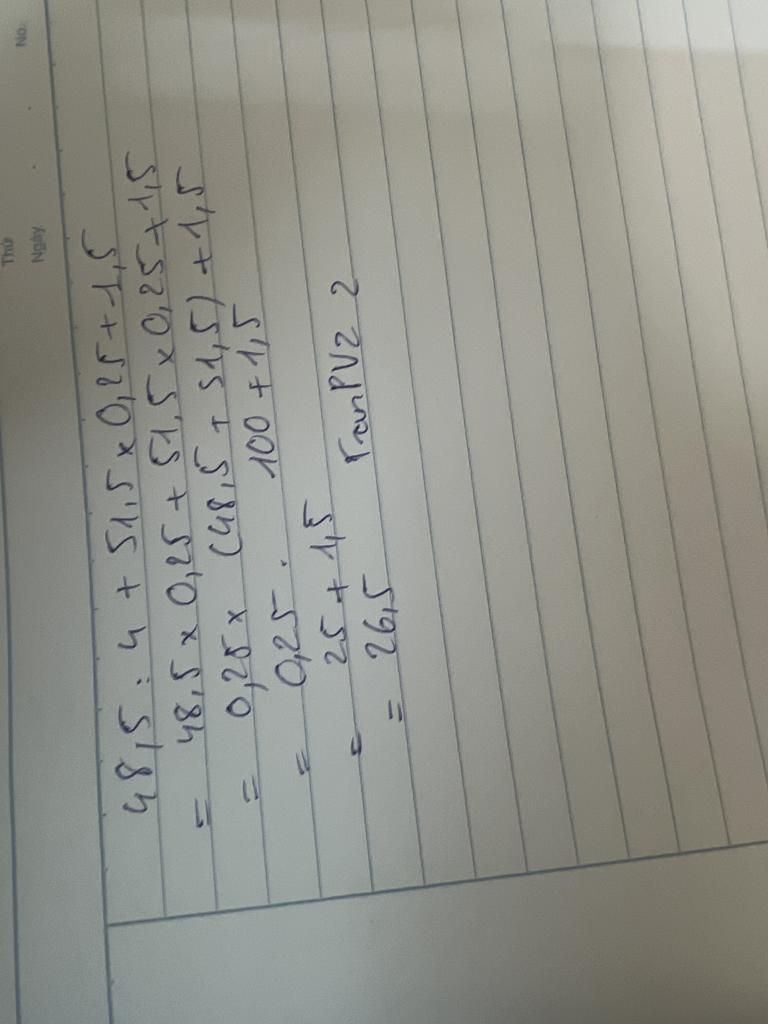 Thứ
Ngày
No.
48,5 : 4 + 51,5 x 0,25 + 1,5
= 48,5 x 0,25 + 51,5 x 0,25 + 1,5
= 0,25 x (48,5 + 51,5) + 1,5
= 0,25 . 100 + 1,5
= 25 + 1,5
= 26,5 FanPVZ 2